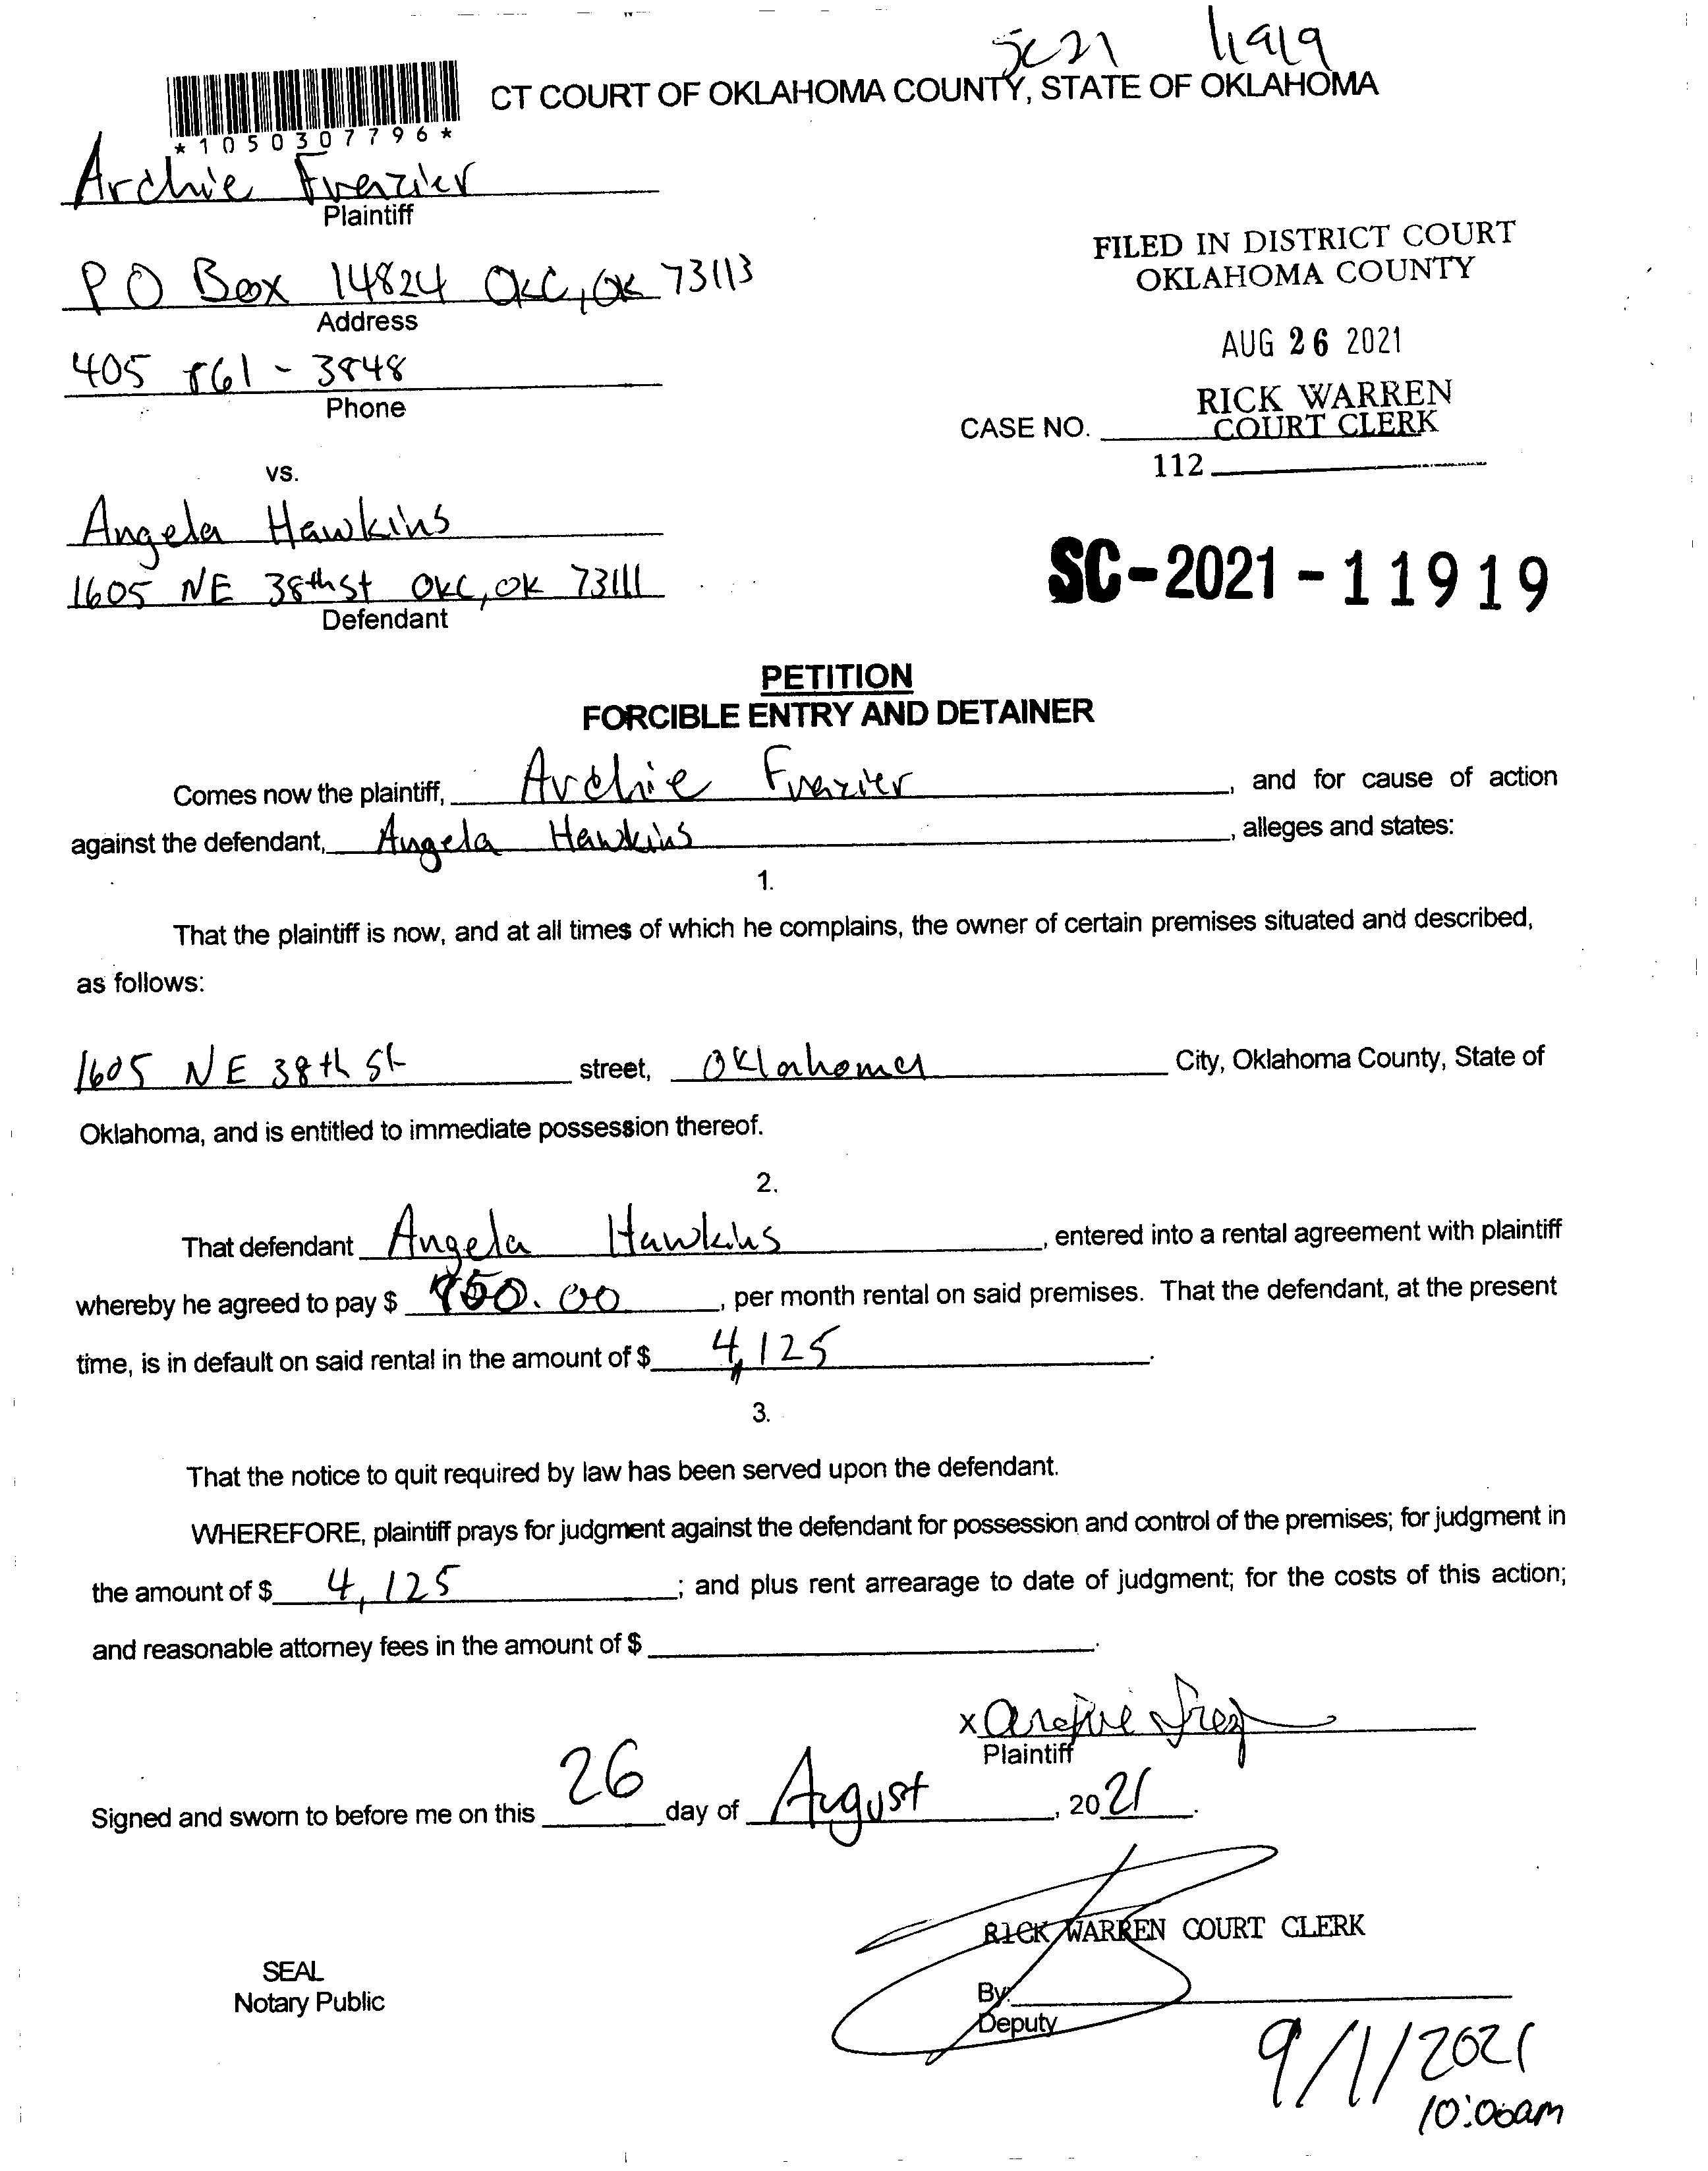 SC21 11919
CT COURT OF OKLAHOMA COUNTY, STATE OF OKLAHOMA
*1050307796*
Archie Frazier
Plaintiff
PO Box 14824 OKC, OK 73113
Address
405 861-3848
Phone
FILED IN DISTRICT COURT
OKLAHOMA COUNTY
AUG 26 2021
RICK WARREN
COURT CLERK
CASE NO.
112
vs.
Angela Hawkins
1605 NE 38th St OKC, OK 73111
Defendant
SC-2021-11919
PETITION
FORCIBLE ENTRY AND DETAINER
Comes now the plaintiff, Archie Frazier, and for cause of action
against the defendant, Angela Hawkins, alleges and states:
1.
That the plaintiff is now, and at all times of which he complains, the owner of certain premises situated and described,
as follows:
1605 NE 38th St street, Oklahoma City, Oklahoma County, State of
Oklahoma, and is entitled to immediate possession thereof.
2.
That defendant Angela Hawkins, entered into a rental agreement with plaintiff
whereby he agreed to pay $ 50.00, per month rental on said premises. That the defendant, at the present
time, is in default on said rental in the amount of $ 4,125.
3.
That the notice to quit required by law has been served upon the defendant.
WHEREFORE, plaintiff prays for judgment against the defendant for possession and control of the premises; for judgment in
the amount of $ 4,125; and plus rent arrearage to date of judgment; for the costs of this action;
and reasonable attorney fees in the amount of $ .
x Archie
Plaintiff
Signed and sworn to before me on this 26 day of August, 2021.
RICK WARREN COURT CLERK
SEAL
Notary Public
By:
Deputy
9/1/2021
10:00am